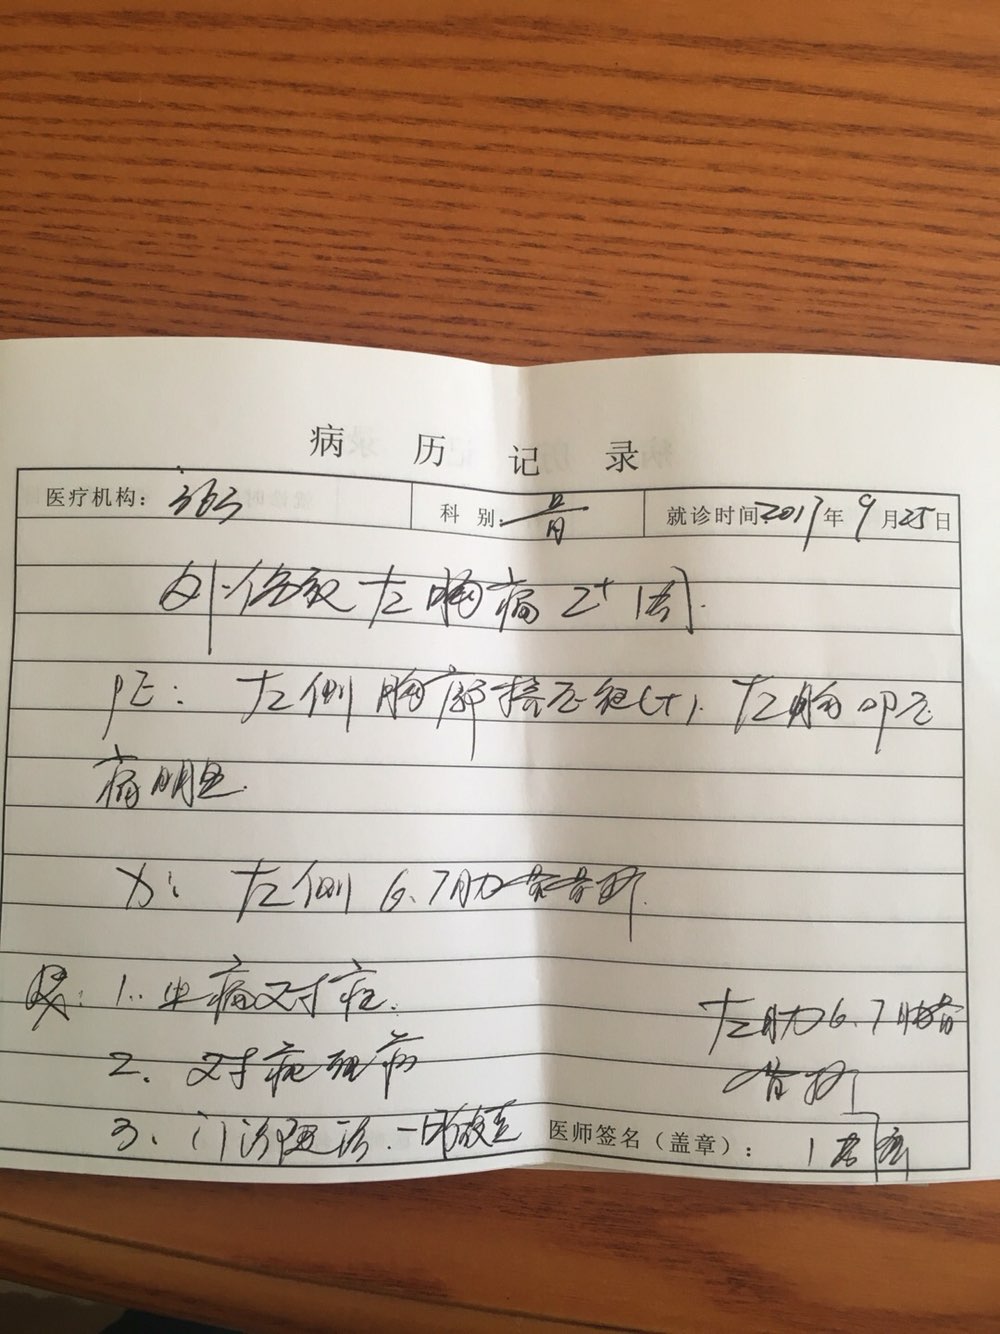 病 历 记 录
医疗机构: 363 科 别: 骨 就诊时间: 2017年9月25日
外伤致左胸痛2+周.
PE: 左侧胸廓挤压征(+). 左胸叩压
痛明显.
X: 左侧6.7肋骨骨折.
1.. 止痛对症.
2. 对症理疗
左肋6.7肋骨
骨折
3. 门诊随诊.
医师签名(盖章):